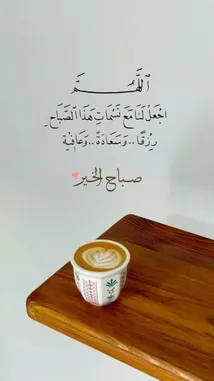 اللَّهُمَّ
اجْعَلْ لَنَا مَعَ نَسَمَاتِ هَذَا الصَّبَاحِ
رِزْقًا .. وَسَعَادَةً .. وَعَافِيَةً
صباح الخير